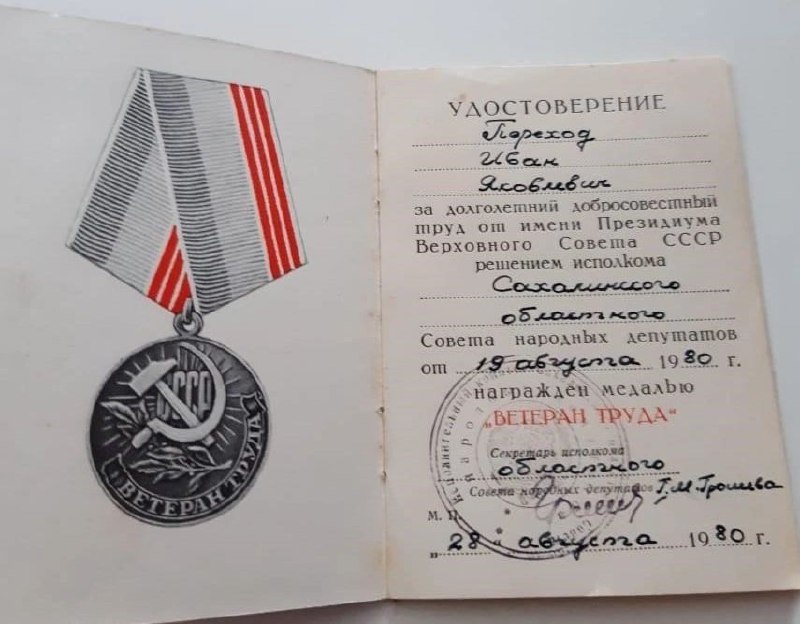 СССР
ВЕТЕРАН ТРУДА
УДОСТОВЕРЕНИЕ
Переход
Иван
Яковлевич
за долголетний добросовестный
труд от имени Президиума
Верховного Совета СССР
решением исполкома
Сахалинского
областного
Совета народных депутатов
от 19 августа 1980 г.
награжден медалью
„ВЕТЕРАН ТРУДА“
Секретарь исполкома
областного
Совета народных депутатов Г.М. Грошева
М. П.
„28“ августа 1980 г.